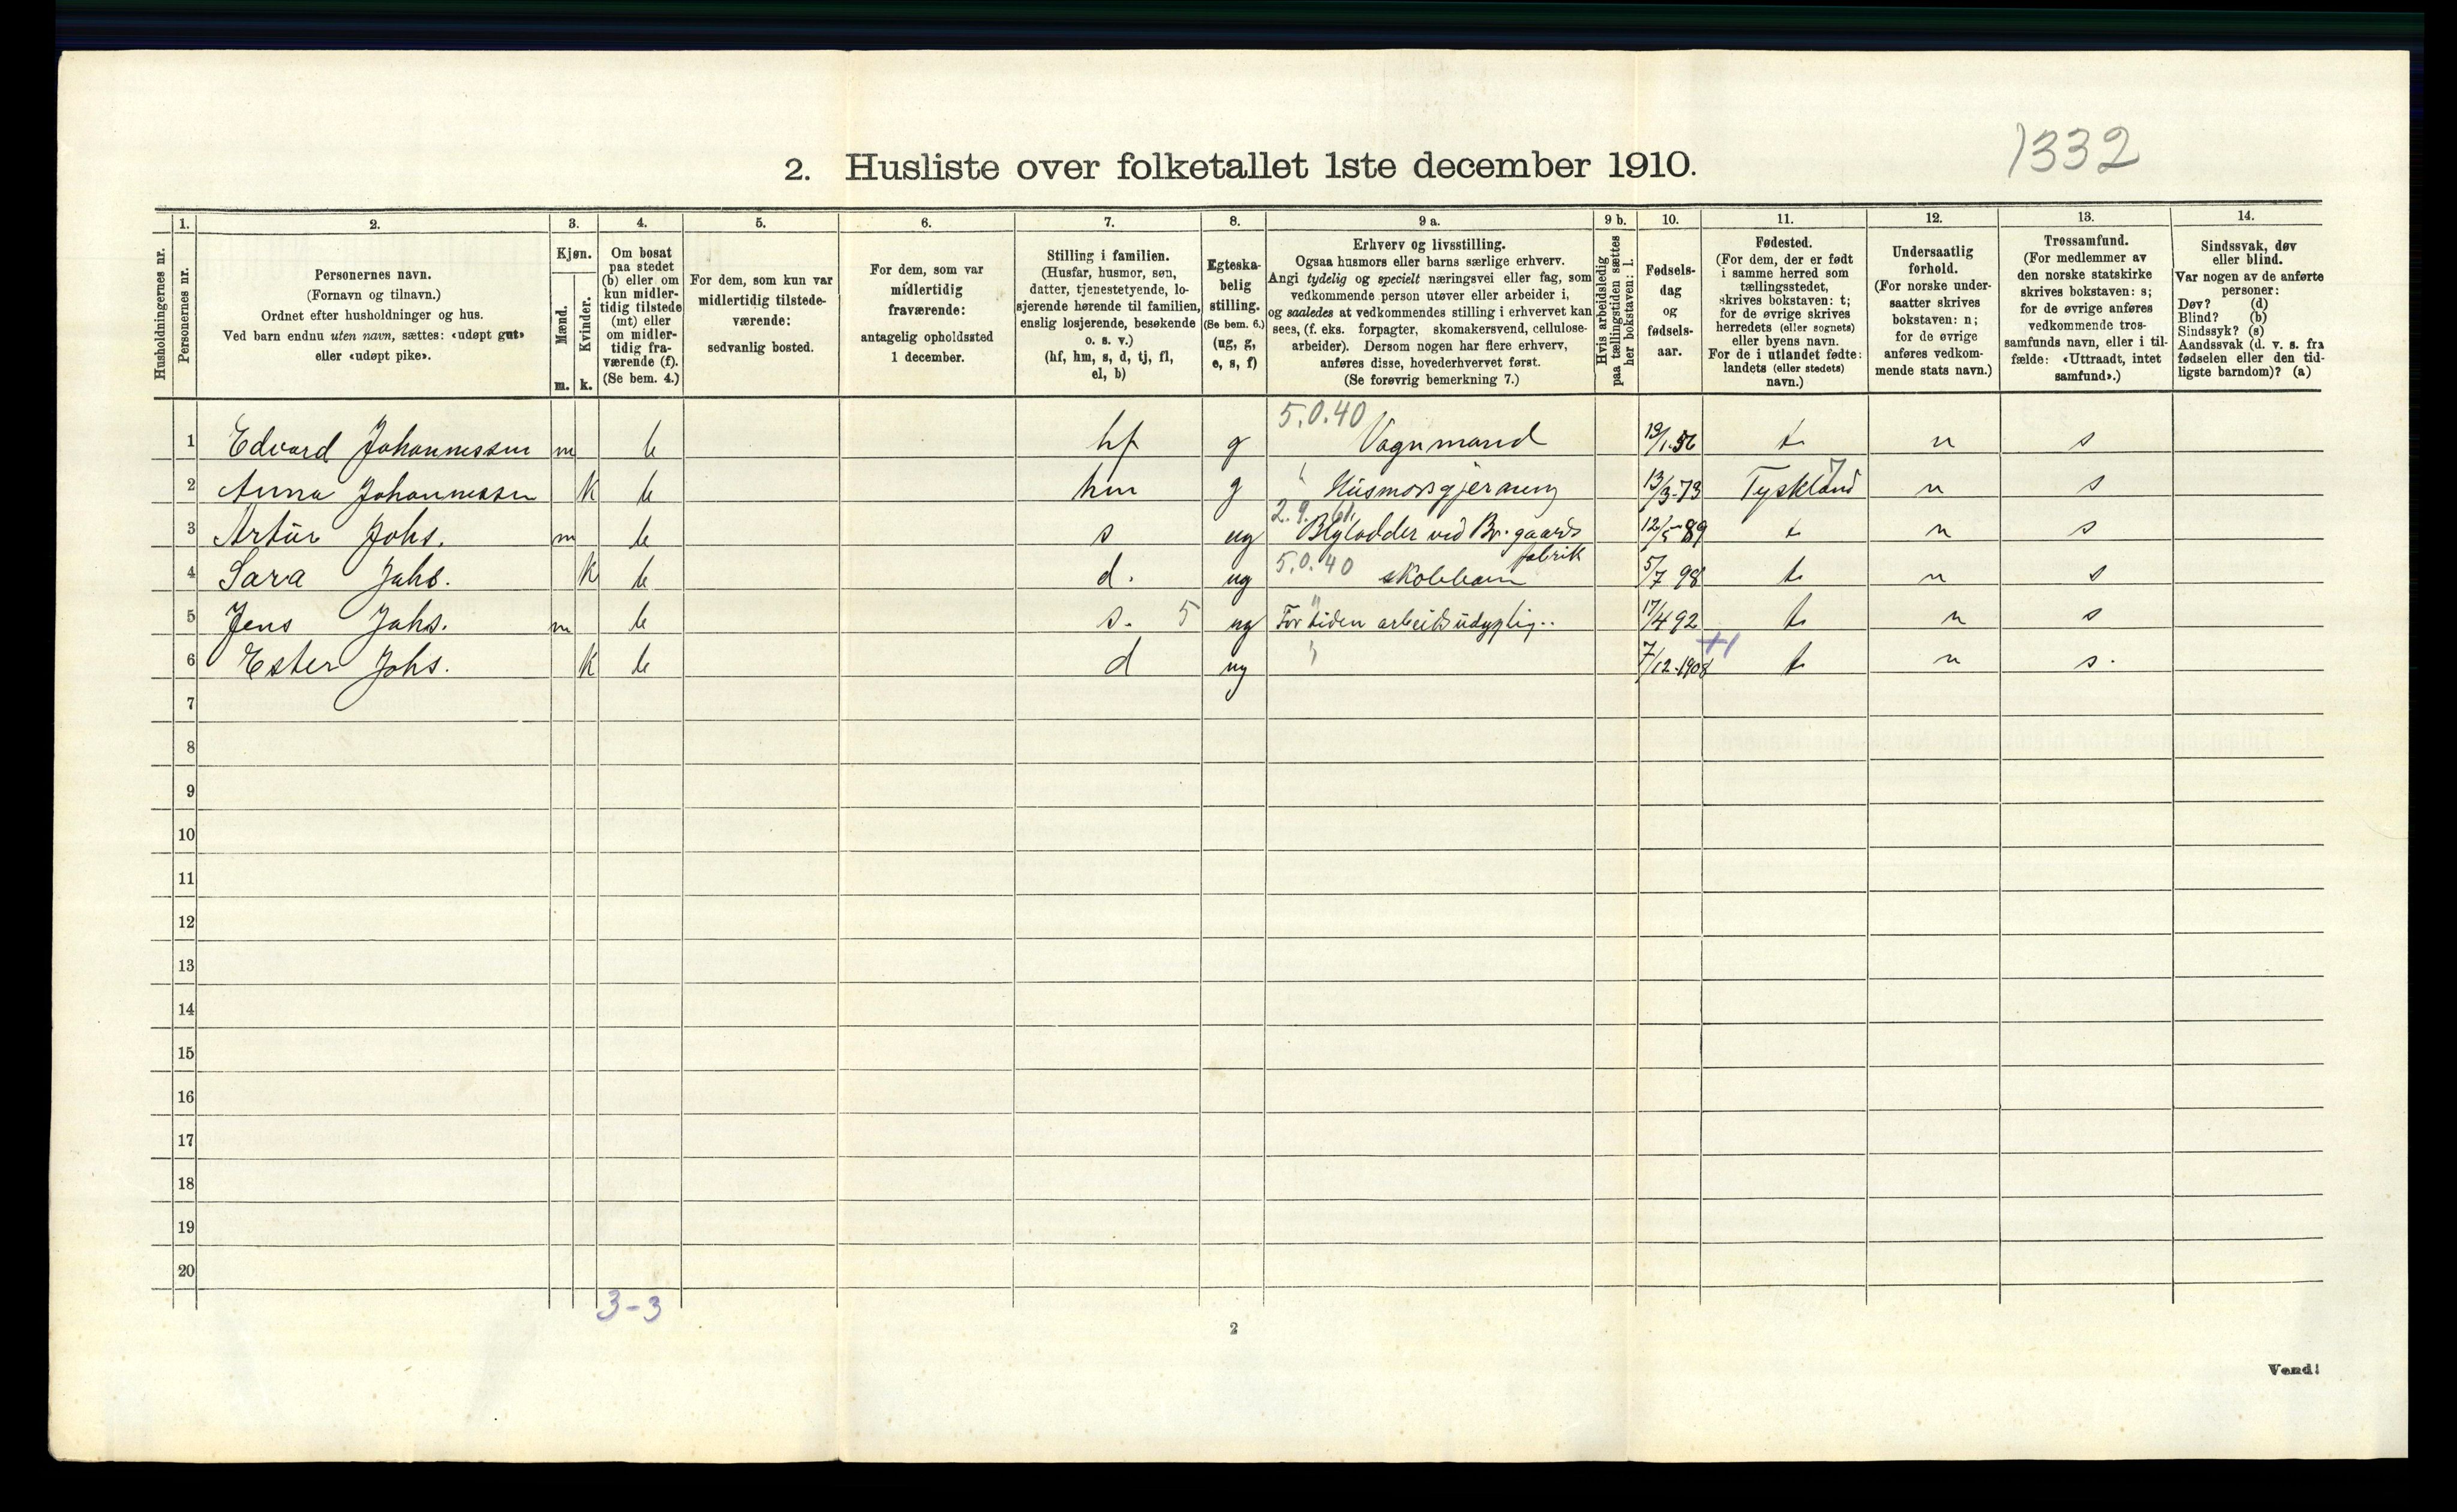 1332
2. Husliste over folketallet 1ste december 1910.
Husholdningernes nr.
1.
Personernes nr.
2.
Personernes navn.
(Fornavn og tilnavn.)
Ordnet efter husholdninger og hus.
Ved barn endnu uten navn, sættes: «udøpt gut»
eller «udøpt pike».
3.
Kjøn.
Mænd.
m.
Kvinder.
k.
4.
Om bosat
paa stedet
(b) eller om
kun midler-
tidig tilstede
(mt) eller
om midler-
tidig fra-
værende (f).
(Se bem. 4.)
5.
For dem, som kun var
midlertidig tilstede-
værende:
sedvanlig bosted.
6.
For dem, som var
midlertidig
fraværende:
antagelig opholdssted
1 december.
7.
Stilling i familien.
(Husfar, husmor, søn,
datter, tjenestetyende, lo-
sjerende hørende til familien,
enslig losjerende, besøkende
o. s. v.)
(hf, hm, s, d, tj, fl,
el, b)
8.
Egteska-
belig
stilling.
(Se bem. 6.)
(ug, g,
e, s, f)
9 a.
Erhverv og livsstilling.
Ogsaa husmors eller barns særlige erhverv.
Angi tydelig og specielt næringsvei eller fag, som
vedkommende person utøver eller arbeider i,
og saaledes at vedkommendes stilling i erhvervet kan
sees, (f. eks. forpagter, skomakersvend, cellulose-
arbeider). Dersom nogen har flere erhverv,
anføres disse, hovederhvervet først.
(Se forøvrig bemerkning 7.)
9 b.
Hvis arbeidsledig
paa tællingstiden sættes
her bokstaven: l.
10.
Fødsels-
dag
og
fødsels-
aar.
11.
Fødested.
(For dem, der er født
i samme herred som
tællingsstedet,
skrives bokstaven: t;
for de øvrige skrives
herredets (eller sognets)
eller byens navn.
For de i utlandet fødte:
landets (eller stedets)
navn.)
12.
Undersaatlig
forhold.
(For norske under-
saatter skrives
bokstaven: n;
for de øvrige
anføres vedkom-
mende stats navn.)
13.
Trossamfund.
(For medlemmer av
den norske statskirke
skrives bokstaven: s;
for de øvrige anføres
vedkommende tros-
samfunds navn, eller i til-
fælde: «Uttraadt, intet
samfund».)
14.
Sindssvak, døv
eller blind.
Var nogen av de anførte
personer:
Døv? (d)
Blind? (b)
Sindssyk? (s)
Aandssvak (d. v. s. fra
fødselen eller den tid-
ligste barndom)? (a)
5.0.40
1 Edvard Johannessen m b hf g Vognmand 19/1.56 t n s
7
2 Anna Johannessen k b hm g Husmorsgjerning 13/3-73 Tyskland n s
2.9.
3 Artur Johs. m b s ug 12/5-89 t n s
fabrik
5.0.40
4 Sara Johs. k b d. ug skolebarn 5/7 98 t n s
5 Jens Johs. m b s. 5 ug For tiden 17/4 92 t n s
6 Ester Johs. k b d ug 7/12-1908 t n s.
7
8
9
10
11
12
13
14
15
16
17
18
19
20
3-3
2
Vend!